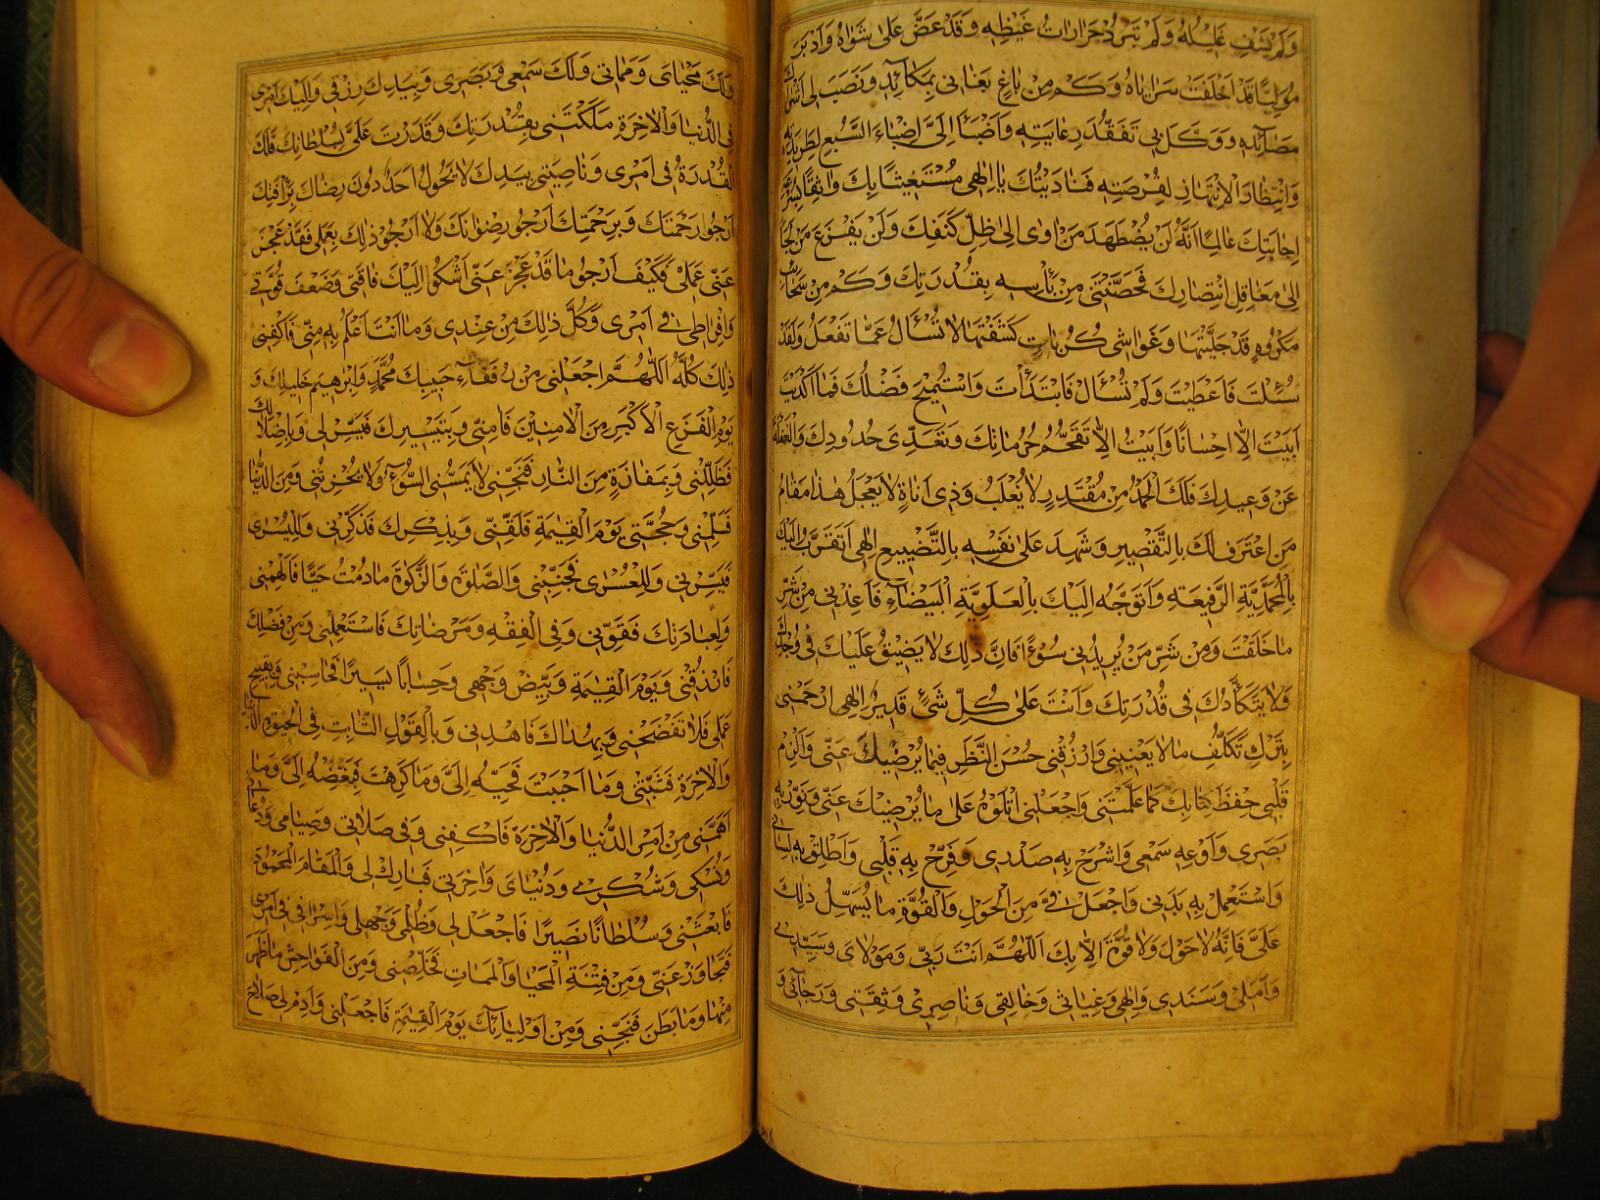 وَلَمْ يَشْفِ غَلِيلُهُ وَلَمْ تَبْرُدْ حَرَارَاتُ غَيْظِهِ وَقَدْ عَضَّ عَلَىٰ شَوَاهُ وَاَدْبَرَ
مُوَلِّيًا قَدْ اَخْلَفَتْ سَرَايَاهُ وَكَمْ مِنْ بَاغٍ بَغَانِي بِمَكَآئِدِهِ وَنَصَبَ لِي اَشْرَاكَ
مَصَآئِدِهِ وَوَكَّلَ بِي تَفَقُّدَ رِعَايَتِهِ وَاَضْبَأَ اِلَيَّ اِضْبَاءَ السَّبُعِ لِطَرِيدَتِهِ
وَانْتِظَارَ الْاِنْتِهَازِ لِفُرْصَتِهِ فَنَادَيْتُكَ يَا اِلٰهِي مُسْتَغِيثًا بِكَ وَاثِقًا بِسُرْعَةِ
اِجَابَتِكَ عَالِمًا اَنَّهُ لَنْ يُضْطَهَدَ مَنْ اَوٰى اِلَىٰ ظِلِّ كَنَفِكَ وَلَنْ يَفْزَعَ مَنْ لَجَأَ
اِلَىٰ مَعَاقِلِ انْتِصَارِكَ فَحَصَّنْتَنِي مِنْ بَأْسِهِ بِقُدْرَتِكَ وَكَمْ مِنْ سَحَائِبِ
مَكْرُوهٍ قَدْ جَلَّيْتَهَا وَغَوَاشِي كُرُبَاتٍ كَشَفْتَهَا لَا تُسْئَالُ عَمَّا تَفْعَلُ وَلَقَدْ
سُئِلْتَ فَاَعْطَيْتَ وَلَمْ تُسْئَالْ فَابْتَدَأْتَ وَاسْتُمِيحَ فَضْلُكَ فَمَا اَكْدَيْتَ
اَبَيْتَ اِلَّا اِحْسَانًا وَاَبَيْتُ اِلَّا تَقَحُّمَ حُرُمَاتِكَ وَتَعَدِّيَ حُدُودِكَ وَالْغَفْلَةَ
عَنْ وَعِيدِكَ فَلَكَ الْحَمْدُ مِنْ مُقْتَدِرٍ لَا يُغْلَبُ وَذِي اَنَاةٍ لَا يَعْجَلُ هٰذَا مَقَامُ
مَنِ اعْتَرَفَ لَكَ بِالتَّقْصِيرِ وَشَهِدَ عَلَىٰ نَفْسِهِ بِالتَّضْيِيعِ اِلٰهِي اَتَقَرَّبُ اِلَيْكَ
بِالْمُحَمَّدِيَّةِ الرَّفِيعَةِ وَاَتَوَجَّهُ اِلَيْكَ بِالْعَلَوِيَّةِ الْبَيْضَآءِ فَاَعِذْنِي مِنْ شَرِّ
مَا خَلَقْتَ وَمِنْ شَرِّ مَنْ يُرِيدُنِي سُوْءًا فَاِنَّ ذٰلِكَ لَا يَضِيقُ عَلَيْكَ فِي وُجْدِكَ
وَلَا يَتَكَأَّدُكَ فِي قُدْرَتِكَ وَاَنْتَ عَلَىٰ كُلِّ شَيْءٍ قَدِيرٌ اِلٰهِي ارْحَمْنِي
بِتَرْكِ تَكَلُّفِ مَا لَا يَعْنِينِي وَارْزُقْنِي حُسْنَ النَّظَرِ فِيمَا يُرْضِيكَ عَنِّي وَاَلْزِمْ
قَلْبِي حِفْظَ كِتَابِكَ كَمَا عَلَّمْتَنِي وَاجْعَلْنِي اَتْلُوهُ عَلَىٰ مَا يُرْضِيكَ عَنِّي وَنَوِّرْ بِهِ
بَصَرِي وَاَوْعِهِ سَمْعِي وَاشْرَحْ بِهِ صَدْرِي وَفَرِّحْ بِهِ قَلْبِي وَاَطْلِقْ بِهِ لِسَانِي
وَاسْتَعْمِلْ بِهِ بَدَنِي وَاجْعَلْ فِيَّ مِنَ الْحَوْلِ وَالْقُوَّةِ مَا يُسَهِّلُ ذٰلِكَ
عَلَيَّ فَاِنَّهُ لَا حَوْلَ وَلَا قُوَّةَ اِلَّا بِكَ اَللّٰهُمَّ اَنْتَ رَبِّي وَمَوْلَايَ وَسَيِّدِي
وَاَمَلِي وَسَنَدِي وَاِلٰهِي وَغِيَاثِي وَخَالِقِي وَنَاصِرِي وَثِقَتِي وَرَجَآئِي وَ
وَلَكَ مَحْيَايَ وَمَمَاتِي وَلَكَ سَمْعِي وَبَصَرِي وَبِيَدِكَ رِزْقِي وَاِلَيْكَ اَمْرِي
فِي الدُّنْيَا وَالْاٰخِرَةِ مَلَكْتَنِي بِقُدْرَتِكَ وَقَدَرْتَ عَلَيَّ بِسُلْطَانِكَ فَلَكَ
الْقُدْرَةُ فِي اَمْرِي وَنَاصِيَتِي بِيَدِكَ لَا يَحُولُ اَحَدٌ دُونَ رِضَاكَ بِرَأْفَتِكَ
اَرْجُوا رَحْمَتَكَ وَبِرَحْمَتِكَ اَرْجُو رِضْوَانَكَ وَلَا اَرْجُو ذٰلِكَ بِعَمَلِي فَقَدْ عَجَزَ
عَنِّي عَمَلِي فَكَيْفَ اَرْجُو مَا قَدْ عَجَزَ عَنِّي اَشْكُوا اِلَيْكَ فَاقَتِي وَضَعْفَ قُوَّتِي
وَاِفْرَاطِي فِي اَمْرِي وَكُلُّ ذٰلِكَ مِنْ عِنْدِي وَمَا اَنْتَ اَعْلَمُ بِهِ مِنِّي فَاكْفِنِي
ذٰلِكَ كُلَّهُ اَللّٰهُمَّ اجْعَلْنِي مِنْ رُفَقَآءِ حَبِيبِكَ مُحَمَّدٍ وَاِبْرٰهِيمَ خَلِيلِكَ وَ
يَوْمَ الْفَزَعِ الْاَكْبَرِ مِنَ الْاٰمِنِينَ فَاٰمِنِّي وَبِتَيْسِيرِكَ فَيَسِّرْ لِي وَبِاِظْلَالِكَ
فَظَلِّلْنِي وَبِمَفَازَةٍ مِنَ النَّارِ فَنَجِّنِي لَا يَمَسُّنِي السُّوٓءُ وَلَا يُحْزِنُنِي وَمِنَ الدُّنْيَا
فَسَلِّمْنِي وَحُجَّتِي يَوْمَ الْقِيٰمَةِ فَلَقِّنِّي وَبِذِكْرِكَ فَذَكِّرْنِي وَلِلْيُسْرٰى
فَيَسِّرْنِي وَلِلْعُسْرٰى فَجَنِّبْنِي وَالصَّلٰوةَ وَالزَّكٰوةَ مَا دُمْتُ حَيًّا فَاَلْهِمْنِي
وَلِعِبَادَتِكَ فَقَوِّنِي وَفِي الْفِقْهِ وَمَرْضَاتِكَ فَاسْتَعْمِلْنِي وَمِنْ فَضْلِكَ
فَارْزُقْنِي وَيَوْمَ الْقِيٰمَةِ فَبَيِّضْ وَجْهِي وَحِسَابًا يَسِيرًا فَحَاسِبْنِي وَبِقَبِيحِ
عَمَلِي فَلَا تَفْضَحْنِي وَبِهُدَاكَ فَاهْدِنِي وَبِالْقَوْلِ الثَّابِتِ فِي الْحَيٰوةِ الدُّنْيَا
وَالْاٰخِرَةِ فَثَبِّتْنِي وَمَا اَحْبَبْتَ فَحَبِّبْهُ اِلَيَّ وَمَا كَرِهْتَ فَبَغِّضْهُ اِلَيَّ وَمَا
اَهَمَّنِي مِنْ اَمْرِ الدُّنْيَا وَالْاٰخِرَةِ فَاكْفِنِي وَفِي صَلَاتِي وَصِيَامِي وَدُعَائِي
وَنُسُكِي وَشُكْرِي وَدُنْيَايَ وَاٰخِرَتِي فَبَارِكْ لِي وَالْمَقَامَ الْمَحْمُودَ
فَابْعَثْنِي وَسُلْطَانًا نَصِيرًا فَاجْعَلْ لِي وَظُلْمِي وَجَهْلِي وَاِسْرَافِي فِي اَمْرِي
فَتَجَاوَزْ عَنِّي وَمِنْ فِتْنَةِ الْمَحْيَا وَالْمَمَاتِ فَخَلِّصْنِي وَمِنَ الْفَوَاحِشِ مَا ظَهَرَ
مِنْهَا وَمَا بَطَنَ فَنَجِّنِي وَمِنْ اَوْلِيَآئِكَ يَوْمَ الْقِيٰمَةِ فَاجْعَلْنِي وَاَدِمْ لِي صَلَاحَ